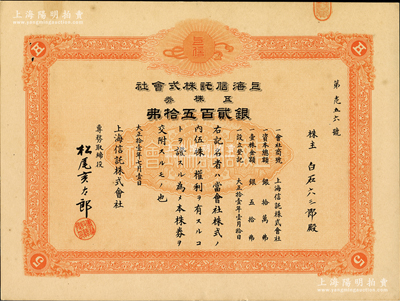 上海陽明拍賣
上海信託株式會社
五株券
銀貳百五拾弗
第 六號
株主 白石六三郎殿
一會社商號 上海信託株式會社
一資本總額 銀拾萬弗
一壹株金額 銀五拾弗
一設立登記 大正拾壹年壹月拾日
右記名者ハ當會社株式ノ
內五株ノ權利ヲ有スルコ
トヲ證スル爲メ本株券ヲ
交附スルモノ也
大正拾壹年七月壹日
上海信託株式會社
專務取締役
松尾亥太郎
五
五
5
5